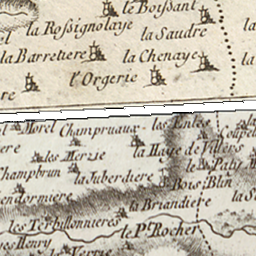 le Boissant
la Rossignolaye
la Saudre
la Barretiere
la Chenaye
l'Orgerie
la
re
Morel
Champruaux
las Entes
iere
les Merzie
la Haye de Villers
le Patis
Champbrun
la Juberdiere
Bois Blin
endormiere
la Briandiere
la S
les Terbillonnieres
le Pt Rocher
Henry
la Vertue